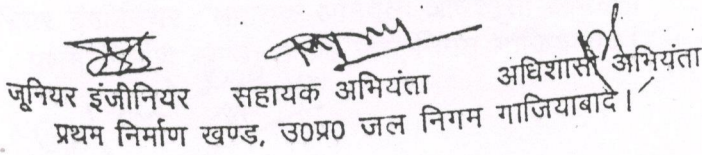 जूनियर इंजीनियर सहायक अभियंता अधिशासी अभियंता
प्रथम निर्माण खण्ड, उ0प्र0 जल निगम गाजियाबाद।